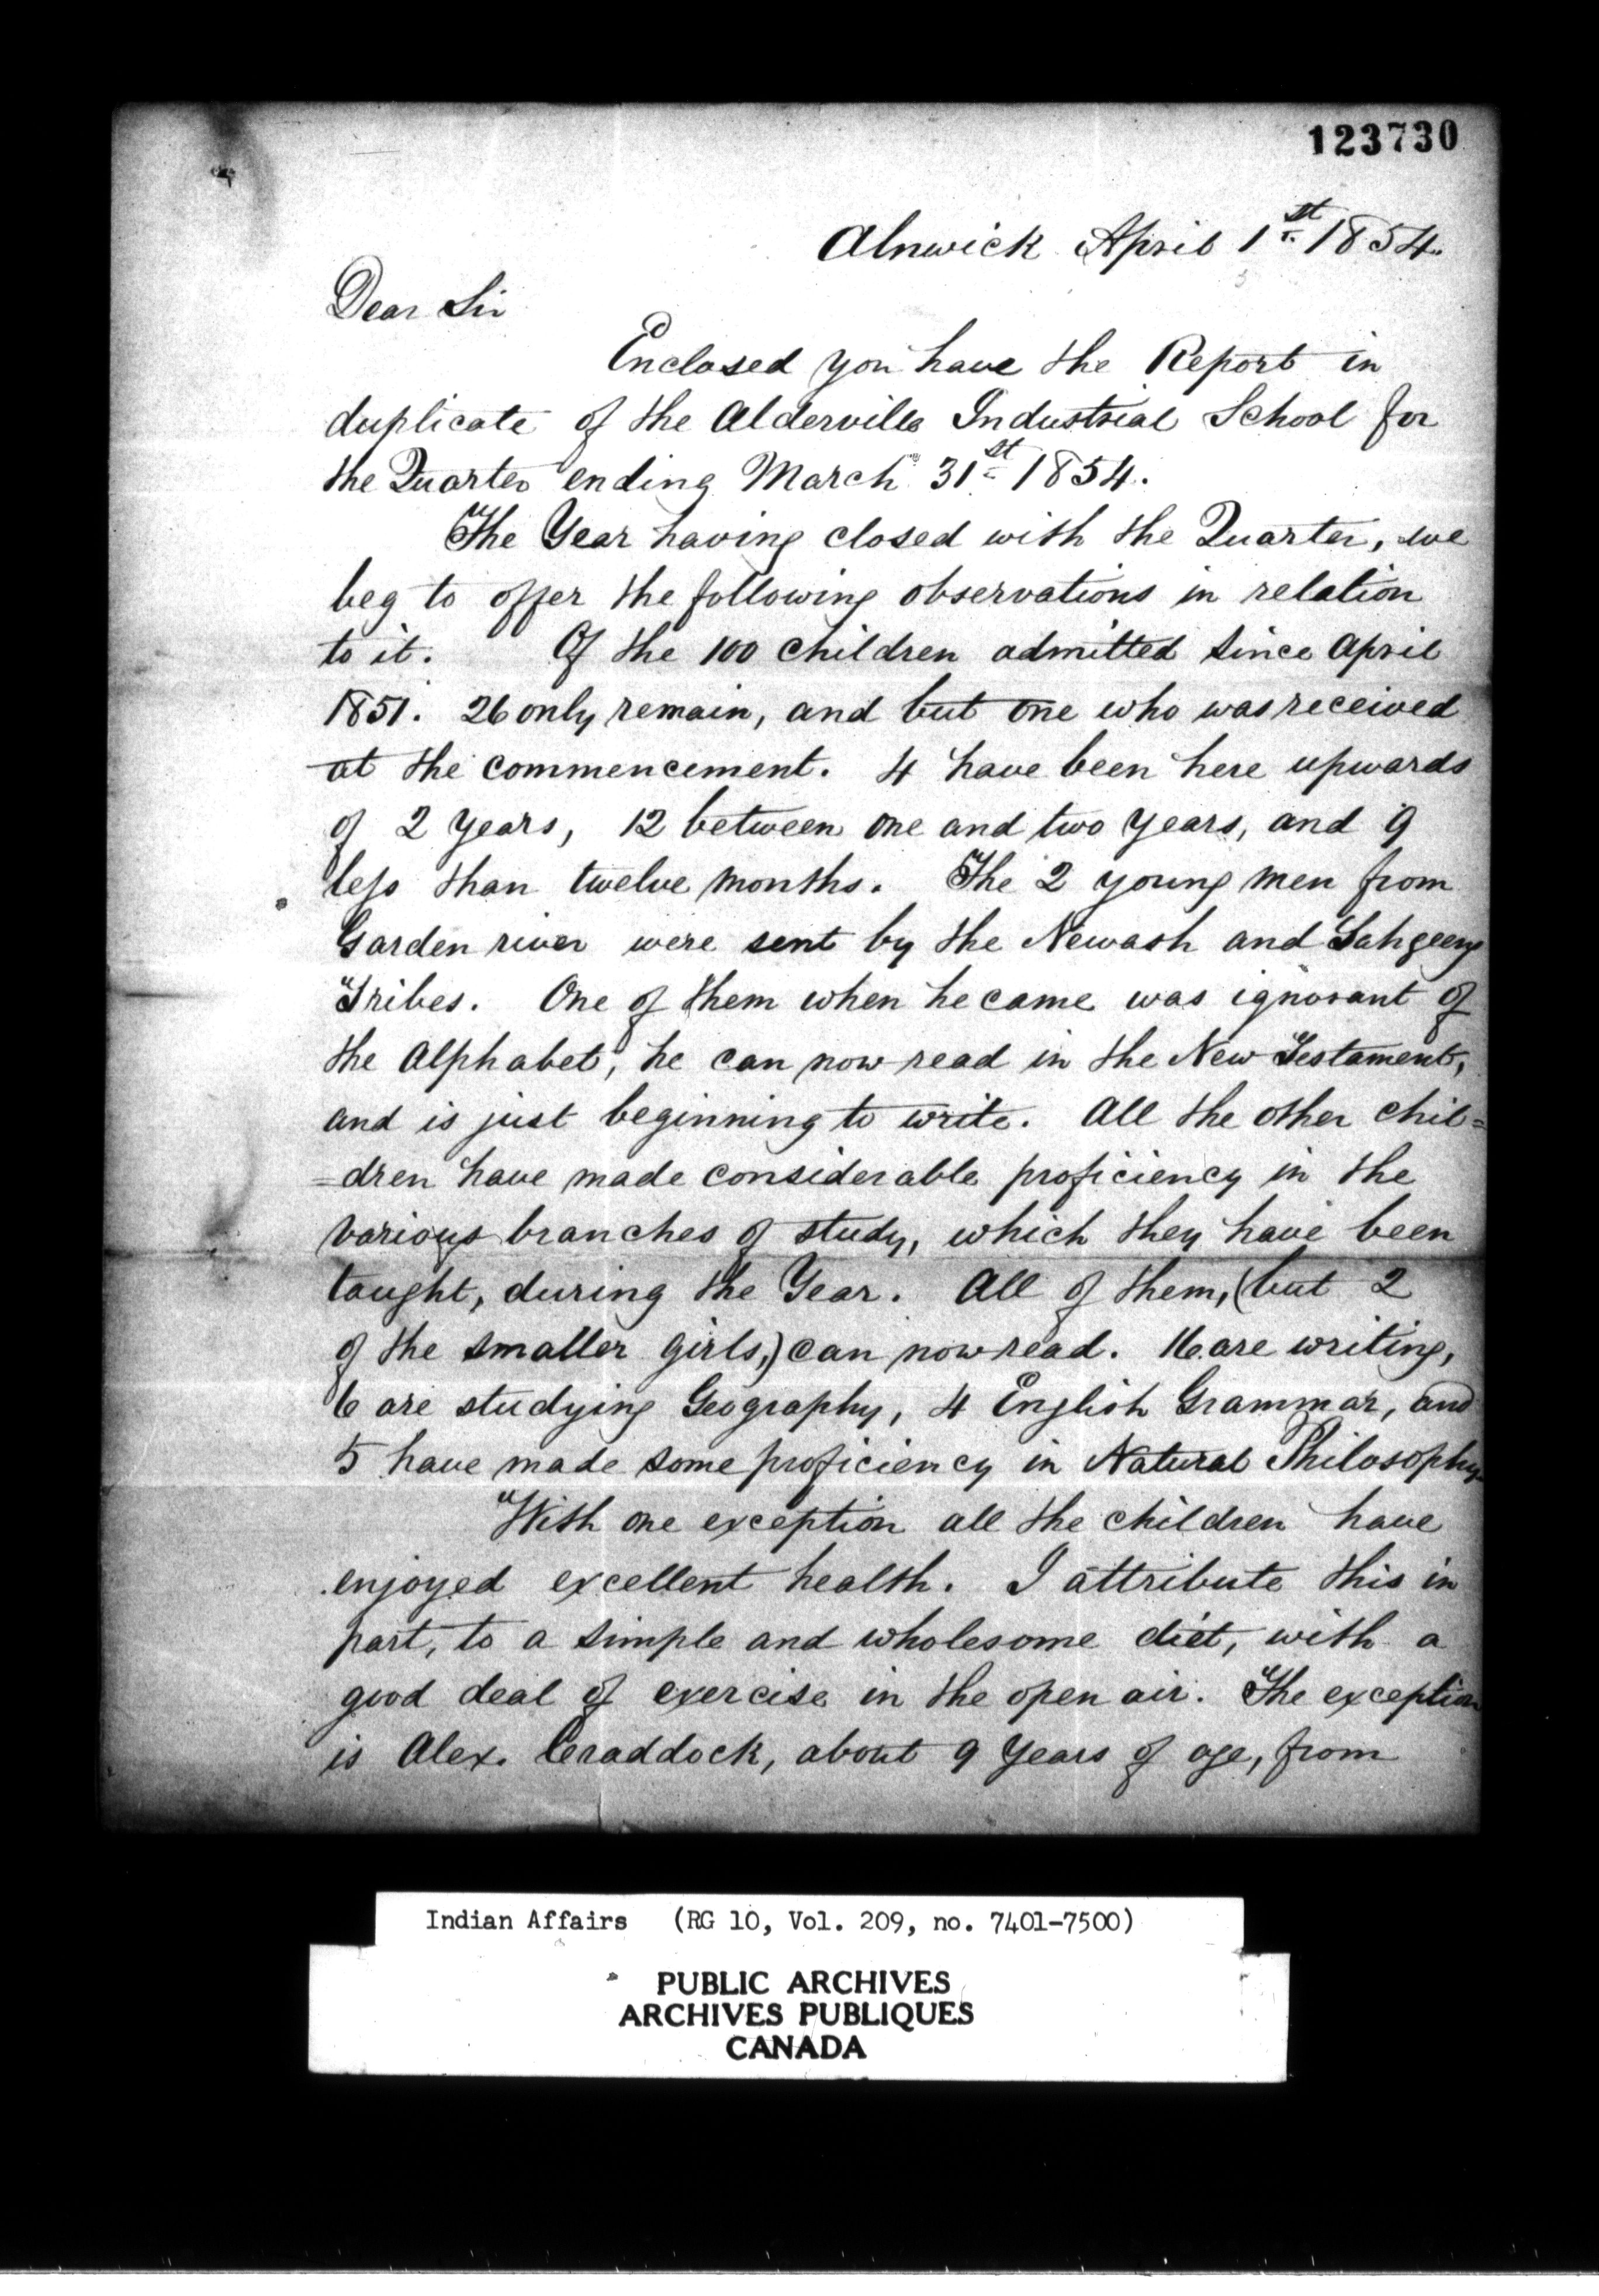 123730
Alnwick April 1st 1854.
Dear Sir
Enclosed you have the Report in
duplicate of the Alderville Industrial School for
the Quarter ending March 31st 1854.
The Year having closed with the Quarter, we
beg to offer the following observations in relation
to it. Of the 100 children admitted since April
1851. 26 only remain, and but one who was received
at the commencement. 4 have been here upwards
of 2 Years, 12 between one and two Years, and 9
less than twelve months. The 2 young men from
Garden river were sent by the Newash and Sahgeeng
Tribes. One of them when he came was ignorant of
the Alphabet, he can now read in the New Testament,
and is just beginning to write. All the other chil=
=dren have made considerable proficiency in the
various branches of study, which they have been
taught, during the Year. All of them, (but 2
of the smaller girls,) can now read. 16 are writing,
6 are studying Geography, 4 English Grammar, and
5 have made some proficiency in Natural Philosophy.
With one exception all the children have
enjoyed excellent health. I attribute this in
part, to a simple and wholesome diet, with a
good deal of exercise in the open air. The exception
is Alex. Craddock, about 9 Years of age, from
Indian Affairs (RG 10, Vol. 209, no. 7401-7500)
PUBLIC ARCHIVES
ARCHIVES PUBLIQUES
CANADA